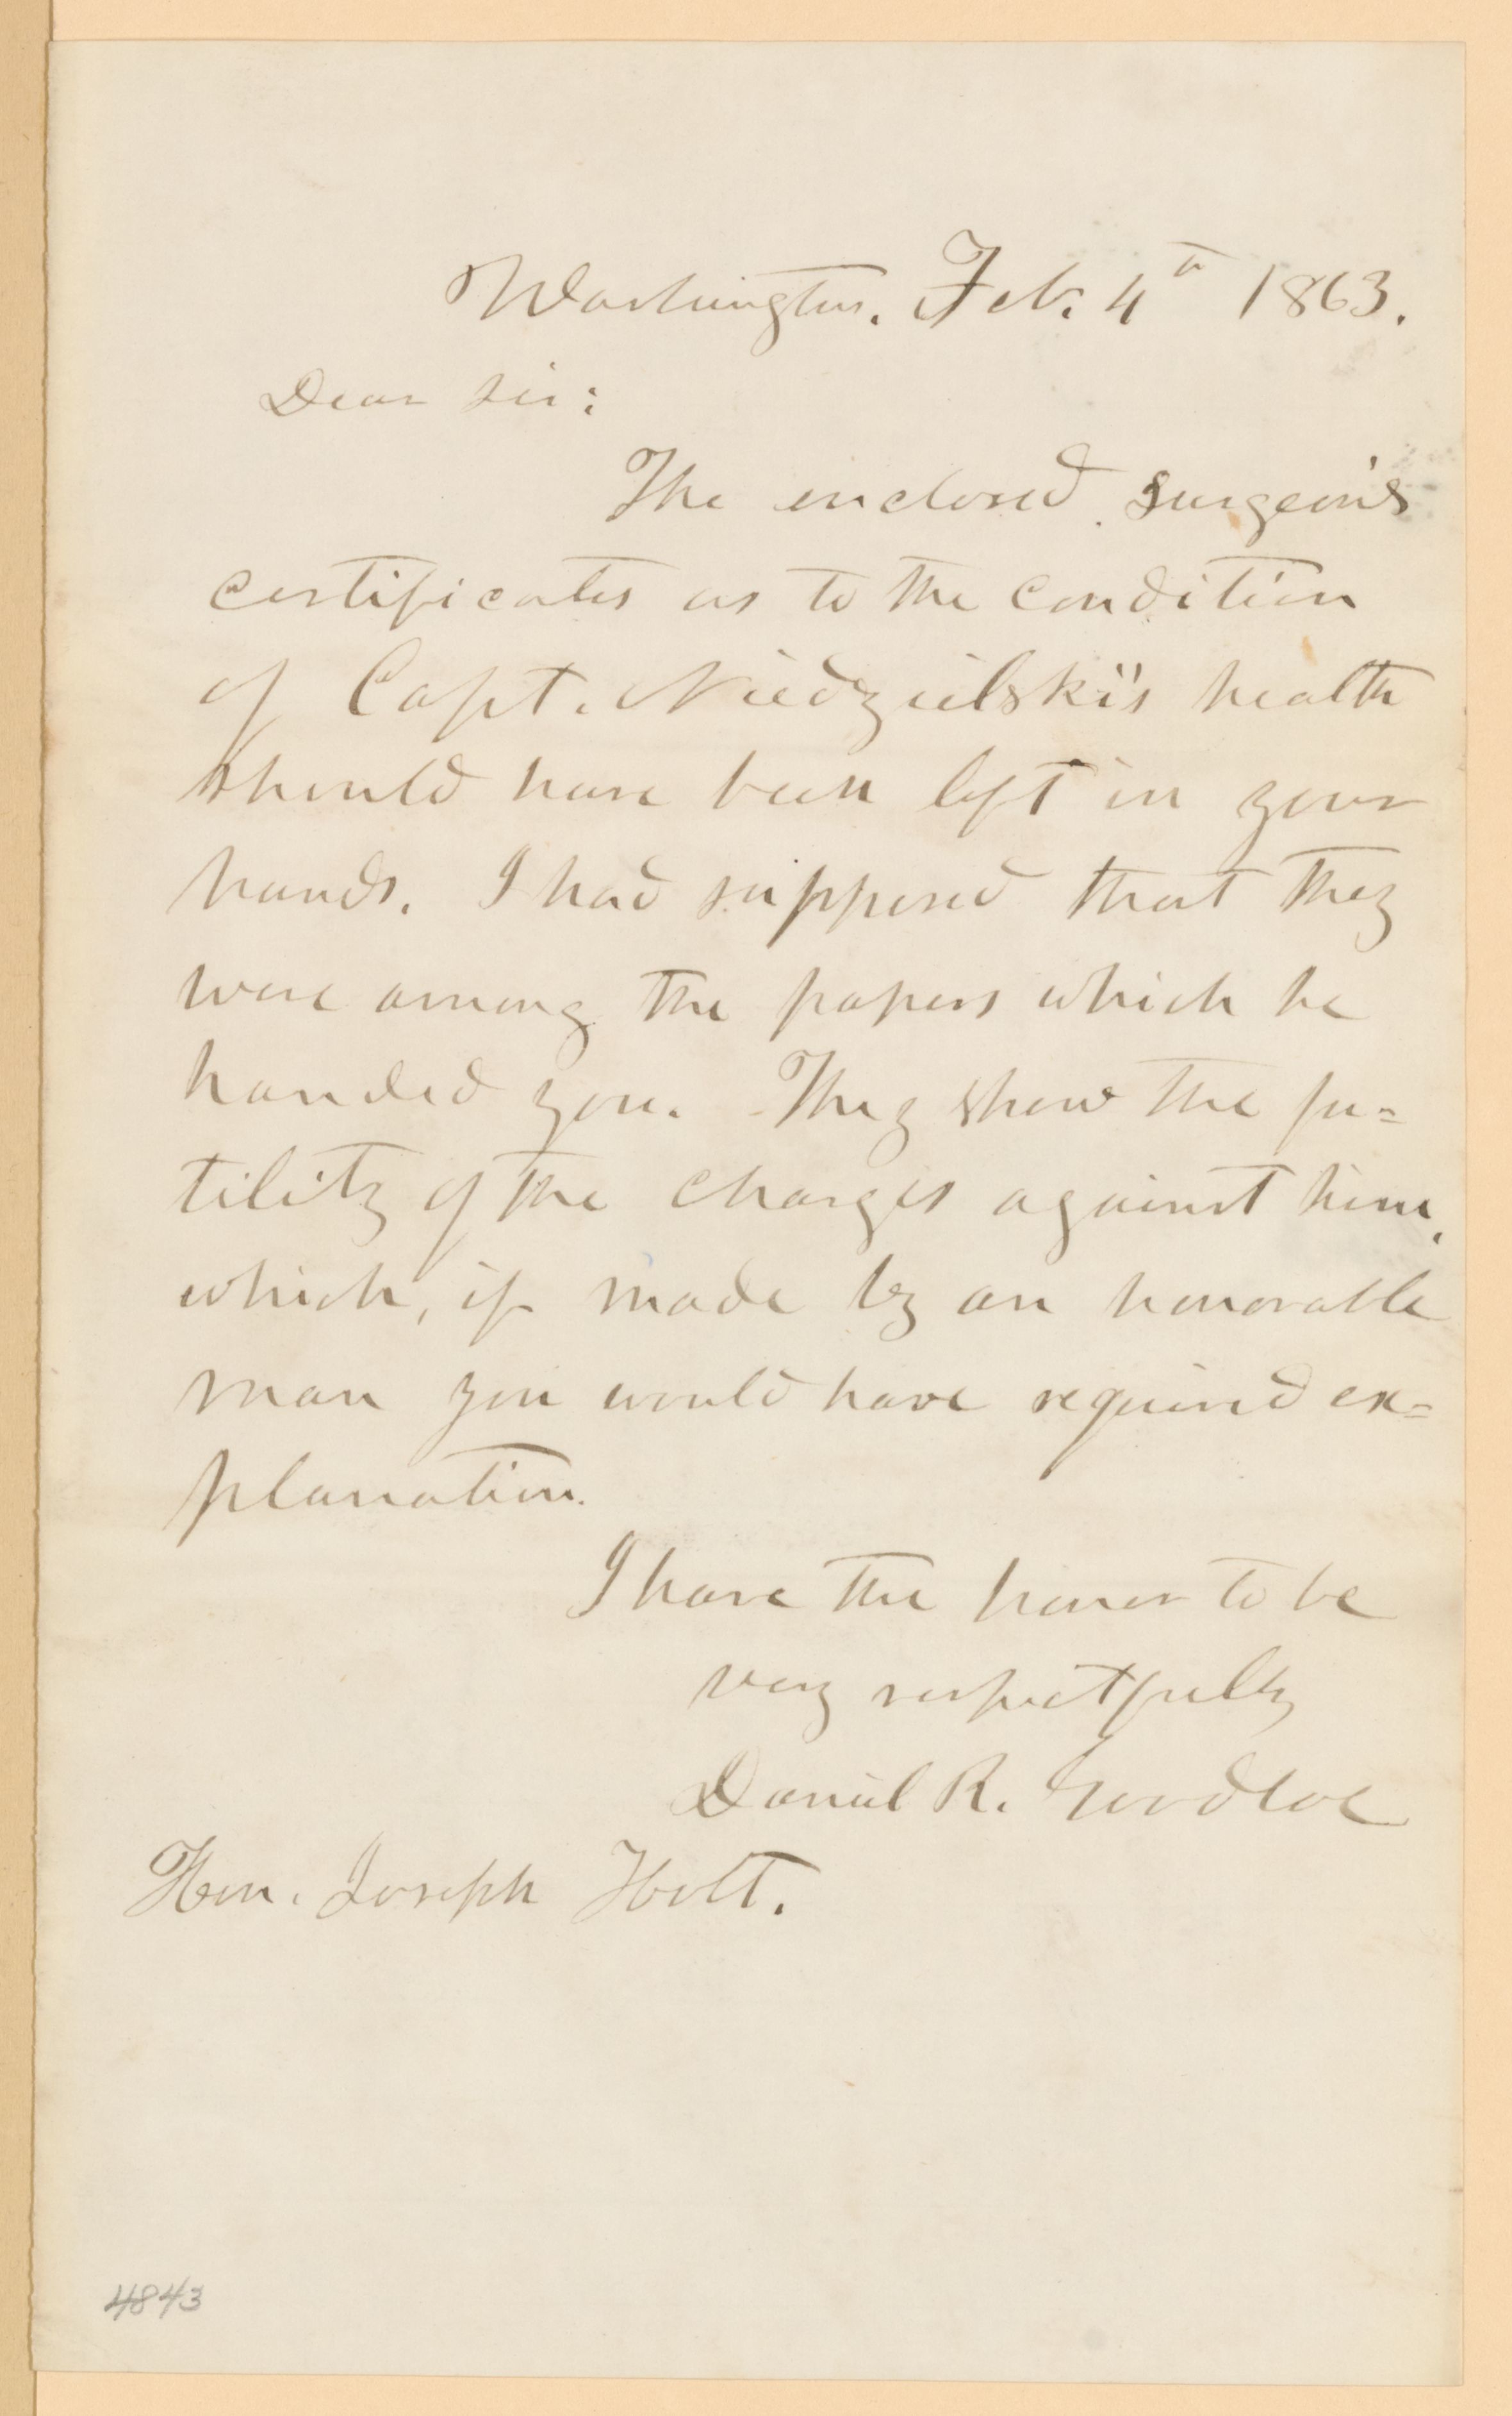 Washington. Feb. 4th 1863.
Dear Sir:
The enclosed surgeon's
certificates as to the condition
of Capt. Niedzielski's health
should have been left in your
hands. I had supposed that they
were among the papers which he
handed you. They show the fu=
tility of the charges against him,
which, if made by an honorable
man you would have required ex=
planation.
I have the honor to be
very respectfully
Daniel R. Goodloe
Hon. Joseph Holt.
4843